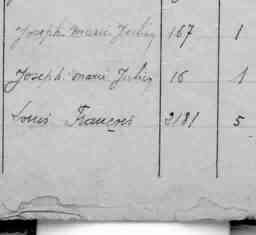 Joseph Marie Julien 167 1
Joseph marie Julien 16 1
Louis François 2181 5